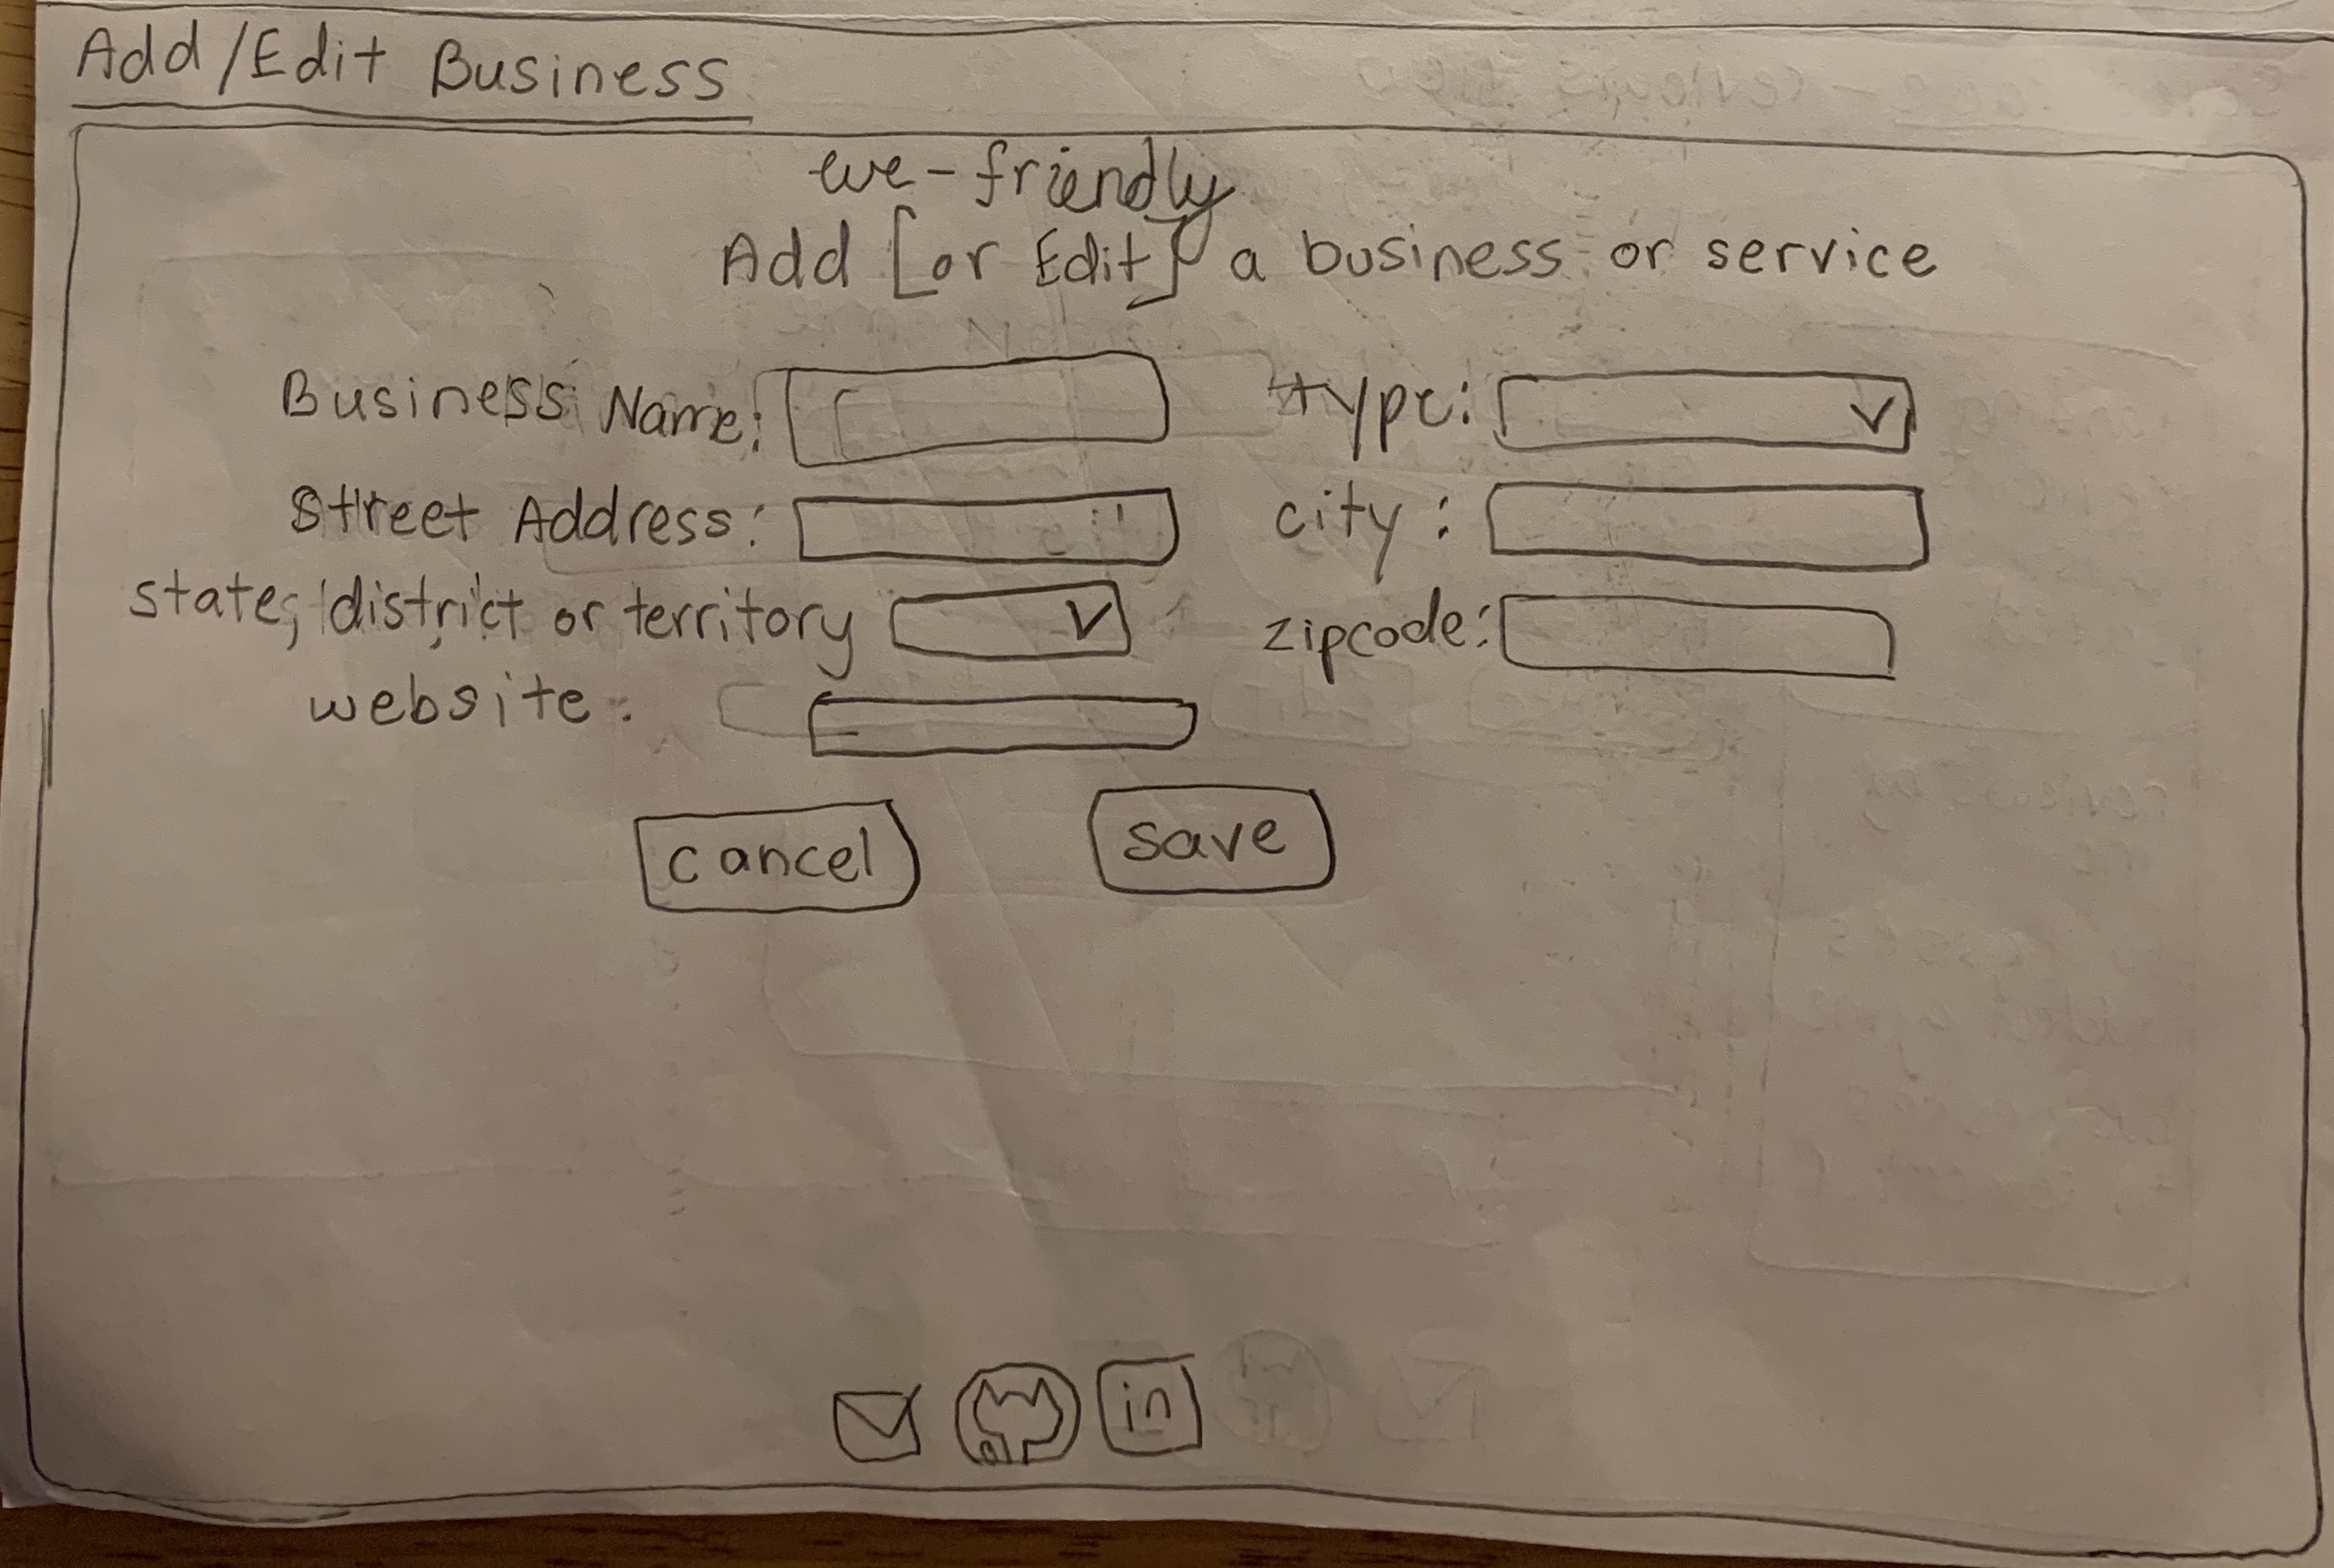 Add/Edit Business
eve-friendly
Add [or Edit] a business or service
Business Name: type:
Street Address: city:
state, district or territory zipcode:
website:
cancel save
in